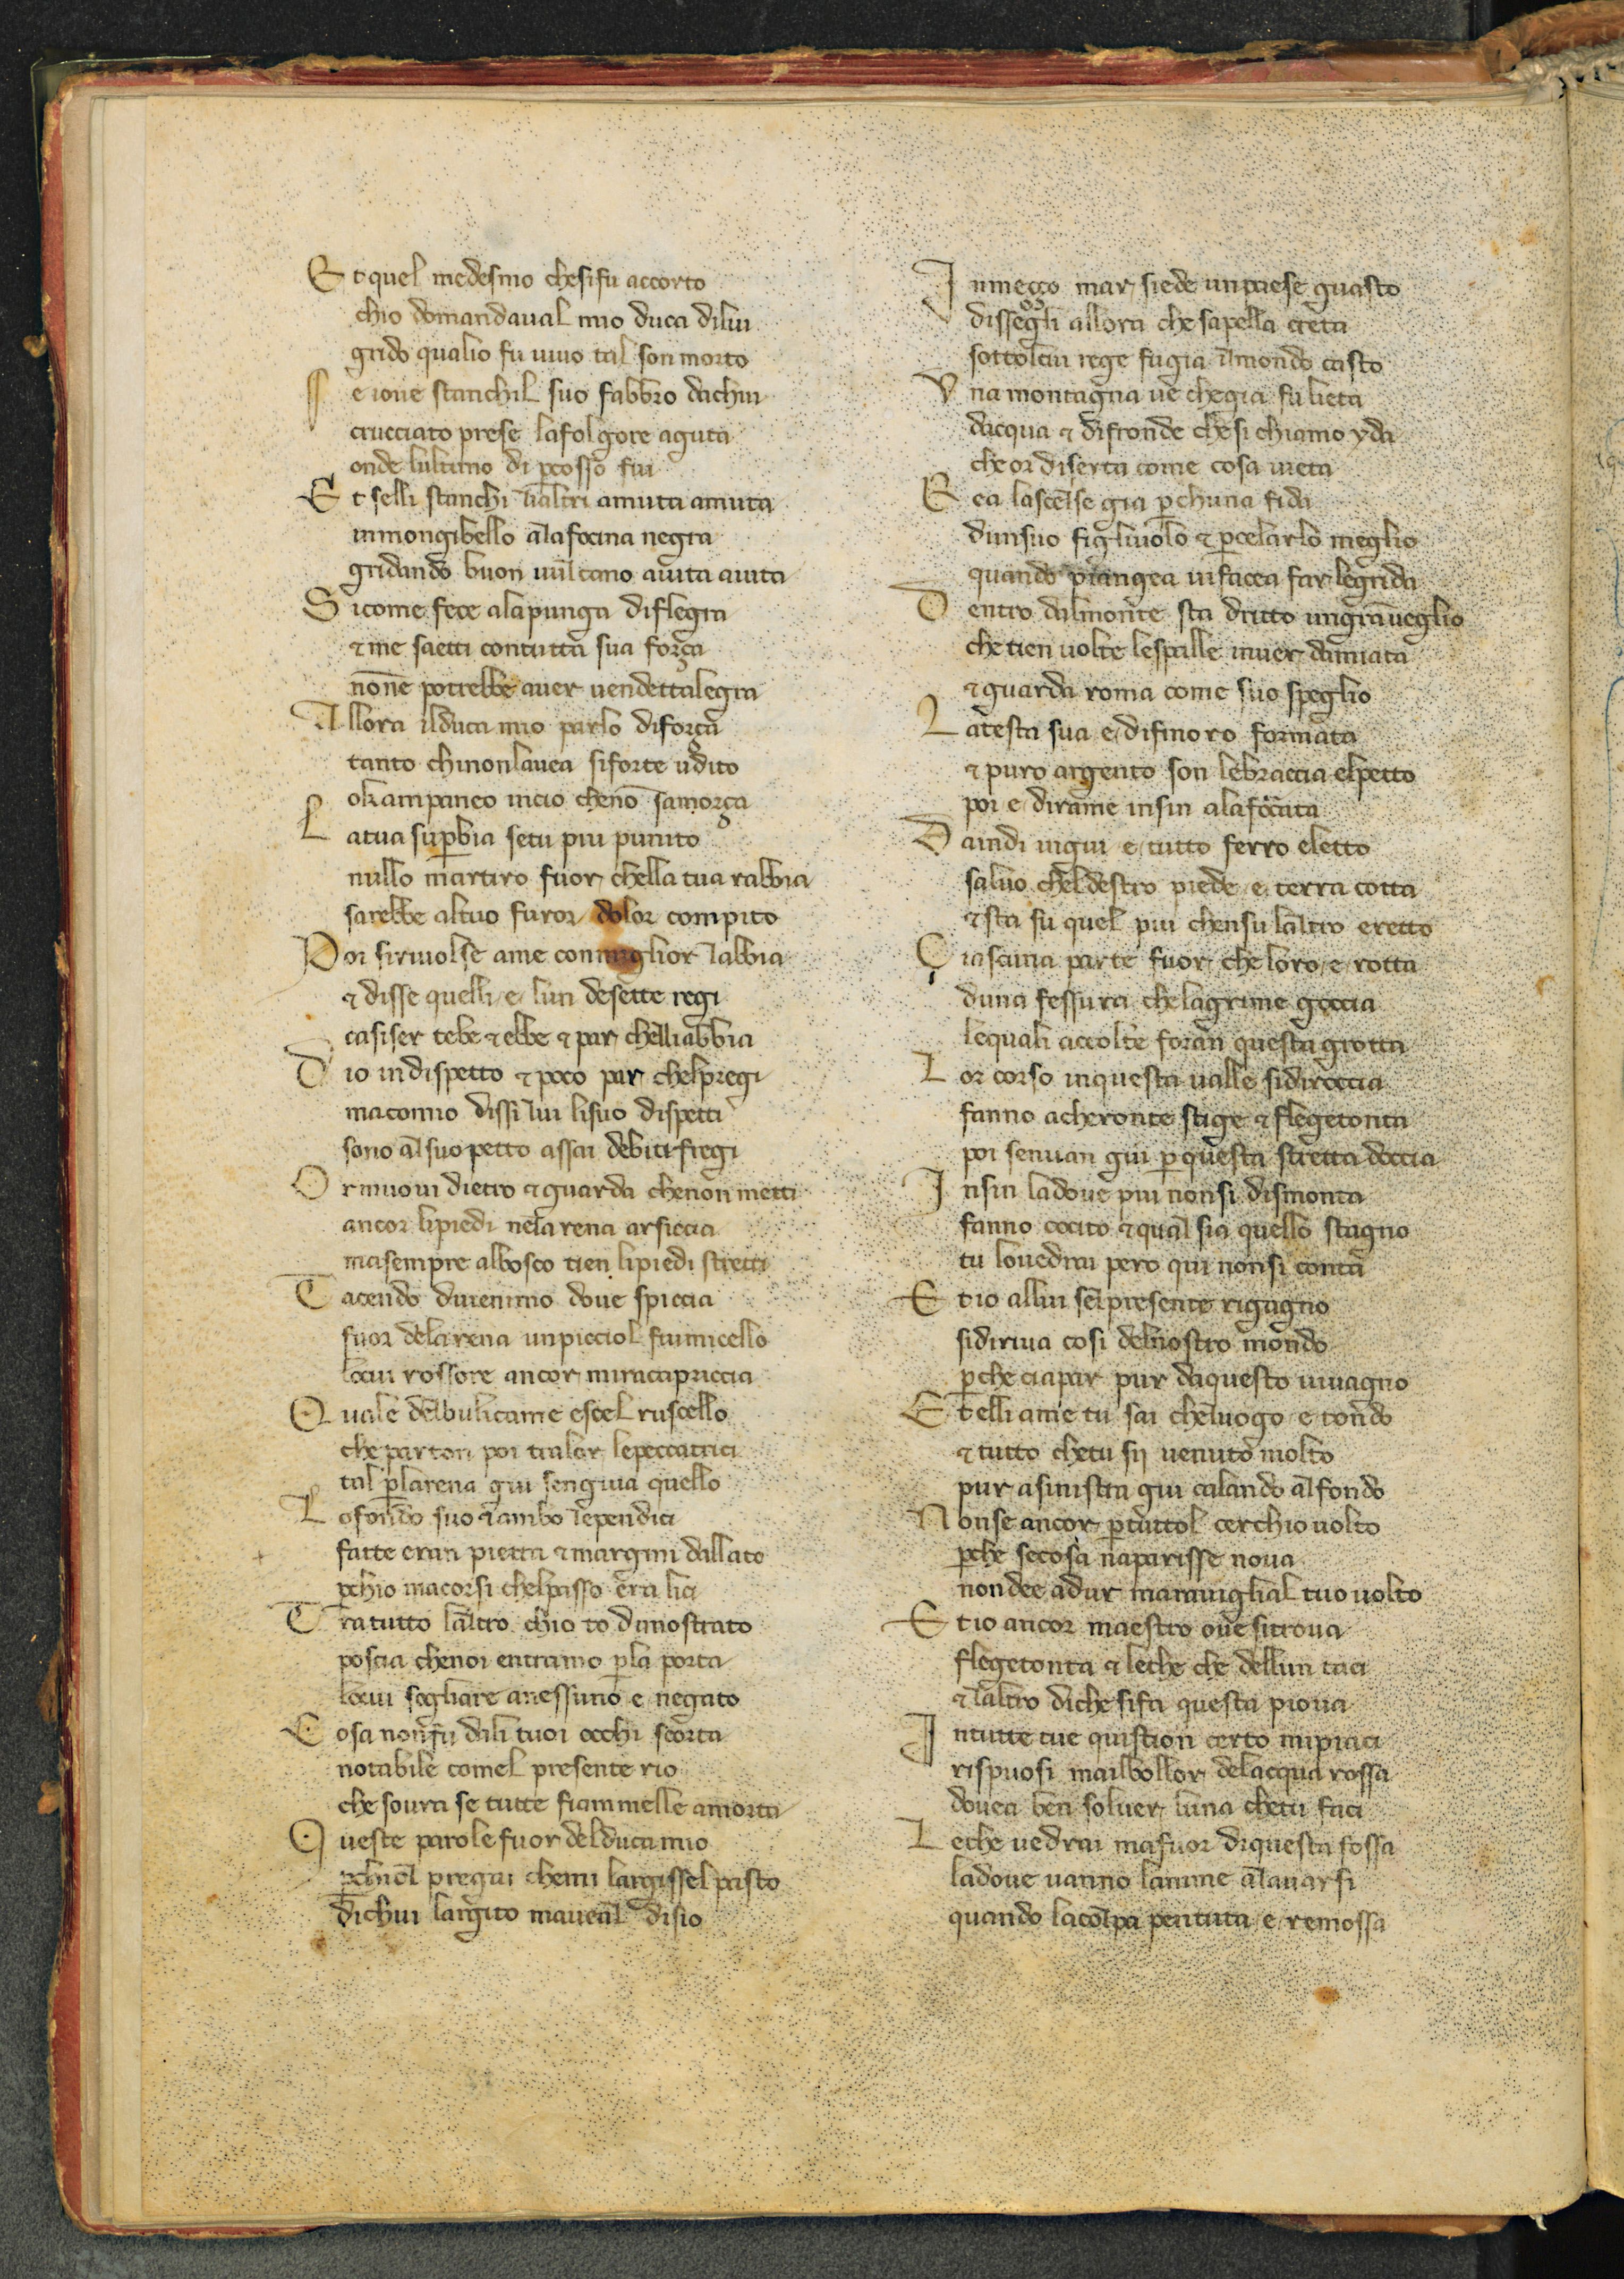 Et quel medesmo chesifu accorto
chio domandaual mio duca dilui
grido qualio fu uiuo tal son morto
Se ioue stanchil suo fabbro dachui
crucciato prese lafolgore aguta
onde lultimo di pcosso fui
Et selli stanchi lialtri amuta amuta
inmongibello alafocina negra
gridando buon uulcano aiuta aiuta
Sicome fece alapunga diflegra
⁊ me saetti contutta sua força
nonne potrebbe auer uendettalegra
Allora ilduca mio parlo diforça
tanto chinonlauea siforte udito
okampaneo incio cheno samorça
Latua supbia setu piu punito
nullo martiro fuor chella tua rabbia
sarebbe altuo furor dolor compito
Poi siriuolse ame conmiglior labbia
⁊ disse quelli e lun desette regi
casiser tebe ⁊ ebbe ⁊ par chelliabbia
Dio indispetto ⁊ poco par chelpregi
macomio dissi lui lisuo dispetti
sono alsuopetto assai debiti fregi
Ormiuoui dietro ⁊ guarda chenon metti
ancor lipiedi nelarena arsiccia
masempre albosco tien lipiedi stretti
Tacendo diuenimo doue spiccia
fuor delarena unpicciol fiumicello
locui rossore ancor miracapriccia
Quale delbulicame escel ruscello
che parton poi tralor lepeccatrici
tal plarena giu sengiua quello
Lofondo suo ⁊ ambo lependici
fatte eran pietra ⁊ margini dallato
pchio macorsi chelpasso era lici
Tratutto laltro chio to dimostrato
poscia chenoi entramo pla porta
locui sogliare anessuno e negato
Cosa nonfu dali tuoi occhi scorta
notabile comel presente rio
che soura se tutte fiammelle amorta
Queste parole fuor delduca mio
pchiol pregai chemi largissel pasto
dichui largito maueal disio
Inmeçço mar siede unpaese guasto
dissegli allora che sapella creta
sottolcui rege fugia ilmondo casto
Vna montagna ue chegia fu lieta
dacqua ⁊ difronde che si chiamo yda
che or diserta come cosa uieta
Rea lascelse gia pchuna fida
dunsuo figliuolo ⁊ pcelarlo meglio
quando piangea uifacea far legrida
Dentro dalmonte sta dritto ungraueglio
che tien uolte lespalle inuer damiata
⁊ guarda roma come suo speglio
Latesta sua e difinoro formata
⁊ puro argento son lebraccia elpetto
poi e dirame insin alaforcata
Daindi ingiu e tutto ferro eletto
saluo cheldestro piede e terra cotta
⁊ sta su quel piu chensu laltro eretto
Ciascuna parte fuor che loro e rotta
duna fessura chelagrime goccia
lequali accolte foran questa grotta
Lor corso inquesta ualle sidiroccia
fanno acheronte stige ⁊ flegetonta
poi senuan giu pquesta stretta doccia
Insin ladoue piu nonsi dismonta
fanno cocito ⁊ qual sia quello stagno
tu louedrai pero qui nonsi conta
Et io allui selpresente rigagno
sidiriua cosi delnostro mondo
pche ciapar pur daquesto uiuagno
Et elli ame tu sai cheluogo e tondo
⁊ tutto chetu sij uenuto molto
pur asinistra giu calando alfondo
Nonse ancor ptuttol cerchio uolto
pche secosa naparisse noua
nondee adur marauiglial tuo uolto
Et io ancor maestro oue sitroua
flegetonta ⁊ leche che dellun taci
⁊ laltro diche sifa questa pioua
Intutte tue quistion certo mipiaci
rispuosi mailbollor delacqua rossa
douea ben soluer luna chetu faci
Leche uedrai mafuor diquesta fossa
ladoue uanno lanime alauarsi
quando lacolpa pentuta e remossa